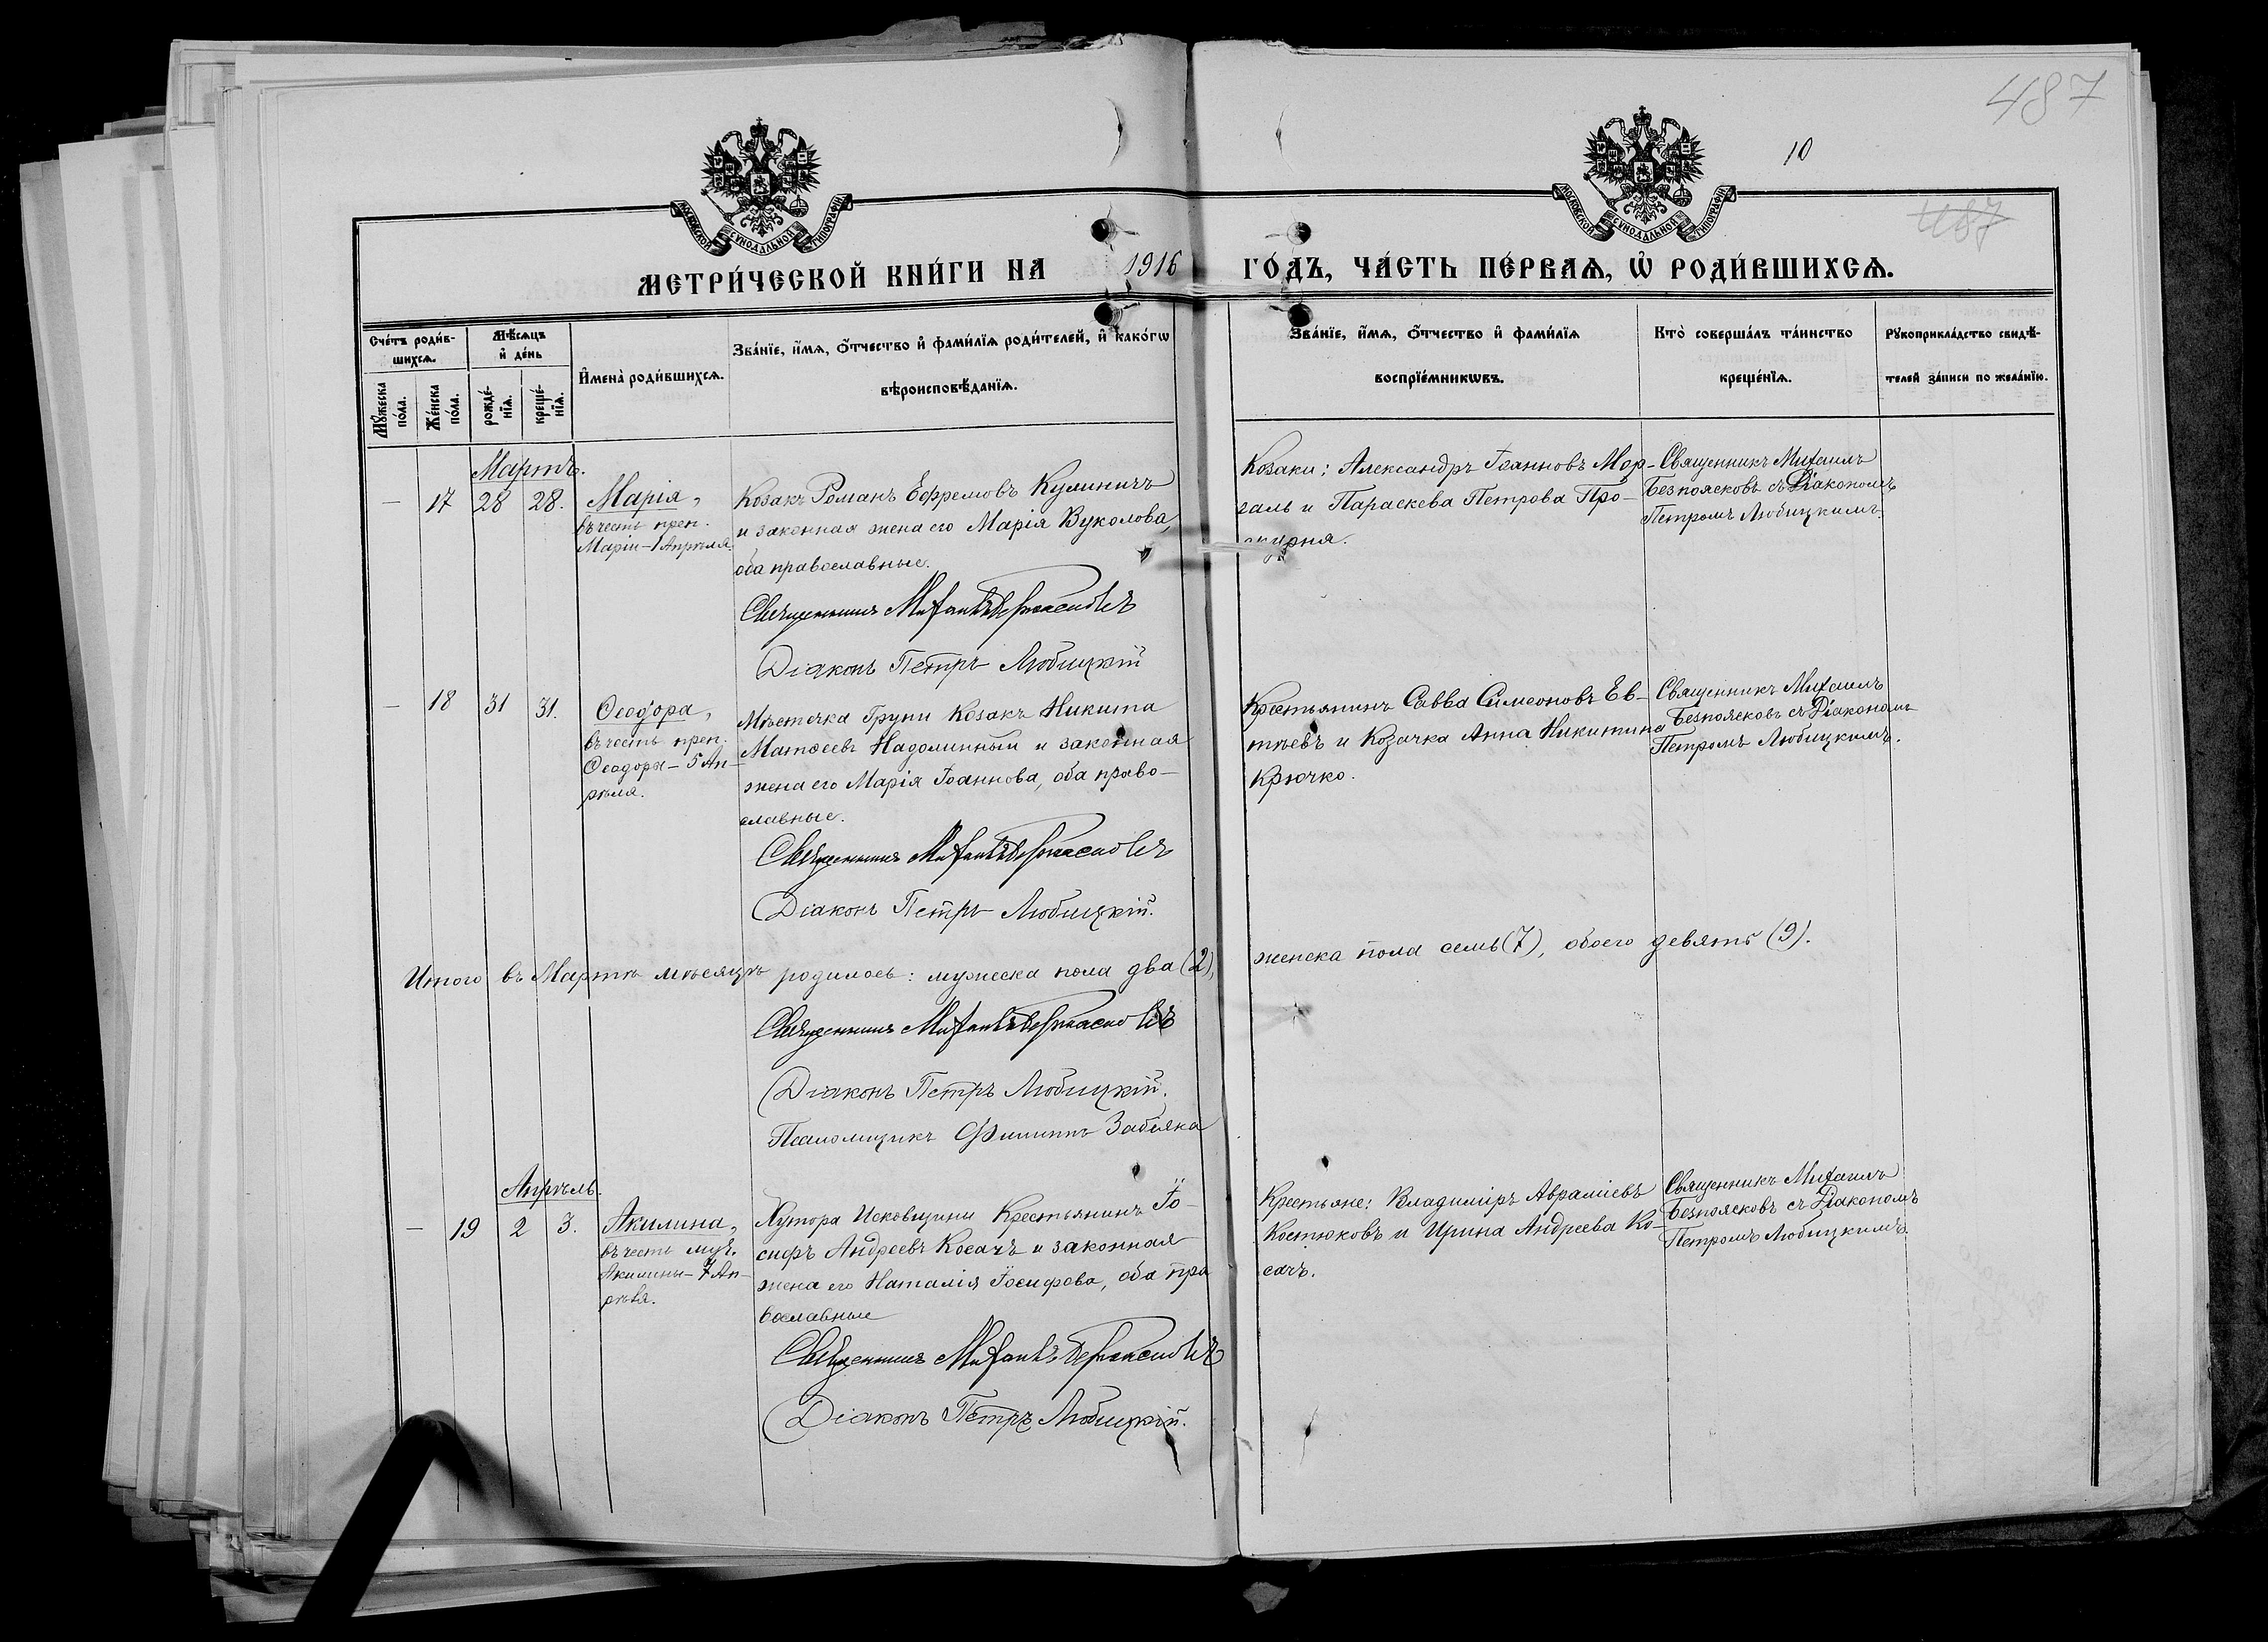 487
10
487
МОСКОВСКОЙ СѴНОДАЛЬНОЙ ТИПОГРАФІИ
МОСКОВСКОЙ СѴНОДАЛЬНОЙ ТИПОГРАФІИ
МЕТРИ́ЧЕСКОЙ КНИ́ГИ НА 1916 ГО́ДЪ, ЧА́СТЬ ПЕ́РВАѦ, Ѡ҆ РОДИ́ВШИХСѦ.
Сче́тъ роди́в-
шихсѧ.
Мꙋ́жеска по́ла.
Же́нска по́ла.
Мѣ́сѧцъ
и҆ де́нь
рожде́-
нїѧ.
креще́-
нїѧ.
И҆мена̀ роди́вшихсѧ.
Зва́нїе, и҆́мѧ, ѻ҆́тчество и҆ фами́лїѧ роди́телей, и҆ како́гѡ
вѣроисповѣ́данїѧ.
Зва́нїе, и҆́мѧ, ѻ҆́тчество и҆ фами́лїѧ
воспрїе́мникѡвъ.
Кто̀ соверша́лъ та́инство
креще́нїѧ.
Рꙋкоприкла́дство свидѣ́-
телей за́писи по жела́нїю.
Мартъ.
— 17 28 28.
Марія,
въ честь преп.
Маріи – 1 Апрѣля.
Козакъ Романъ Ефремовъ Кулиничъ
и законная жена его Марія Вуколова,
оба православные.
Священникъ Михаилъ Безпоясковъ
Діаконъ Петръ Любицкій
Козаки: Александръ Іоанновъ Мор-
галь и Параскева Петрова Про-
скурня.
Священникъ Михаилъ
Безпоясковъ съ Діакономъ
Петромъ Любицкимъ.
— 18 31 31.
Ѳеодора,
въ честь преп.
Ѳеодоры – 5 Ап-
рѣля.
Мѣстечка Груни Козакъ Никита
Матѳеевъ Надолинный и законная
жена его Марія Іоаннова, оба право-
славные.
Священникъ Михаилъ Безпоясковъ
Діаконъ Петръ Любицкій.
Крестьянинъ Савва Симеоновъ Ев-
тѣевъ и Козачка Анна Никитина
Крючко.
Священникъ Михаилъ
Безпоясковъ съ Діакономъ
Петромъ Любицкимъ.
Итого въ Мартѣ мѣсяцѣ родилось: мужеска пола два (2), женска пола семь (7), обоего девять (9).
Священникъ Михаилъ Безпоясковъ
Діаконъ Петръ Любицкій.
Псаломщикъ Филиппъ Забіяка
Апрѣль.
— 19 2 3.
Акилина,
въ честь муч.
Акилины – 7 Ап-
рѣля.
Хутора Исковщини Крестьянинъ Іо-
сифъ Андреевъ Косачъ и законная
жена его Наталія Іосифова, оба пра
вославные
Священникъ Михаилъ Безпоясковъ
Діаконъ Петръ Любицкій.
Крестьяне: Владиміръ Авраміевъ
Костюковъ и Ирина Андреева Ко-
сачъ.
Священникъ Михаилъ
Безпоясковъ съ Діакономъ
Петромъ Любицкимъ.